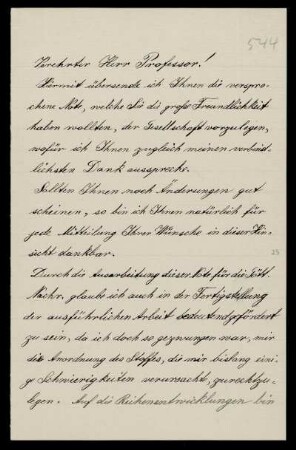 544
Verehrter Herr Professor!
Hiermit übersende ich Ihnen die verspro-
chene Note, welche Sie die große Freundlichkeit
haben wollten, der Gesellschaft vorzulegen,
wofür ich Ihnen zugleich meinen verbind-
lichsten Dank ausspreche.
Sollten Ihnen noch Änderungen gut
scheinen, so bin ich Ihnen natürlich für
jede Mitteilung Ihrer Wünsche in dieser Hin-
sicht dankbar.
Durch die Ausarbeitung dieser Note für die Gött.
Nachr. glaube ich auch in der Fertigstellung
der ausführlichen Arbeit bedeutend gefördert
zu sein, da ich doch so gezwungen war, mir
die Anordnung des Stoffes, die mir bislang eini-
ge Schwierigkeiten verursacht, zurechtzu-
legen. Auf die Reihenentwicklungen bin